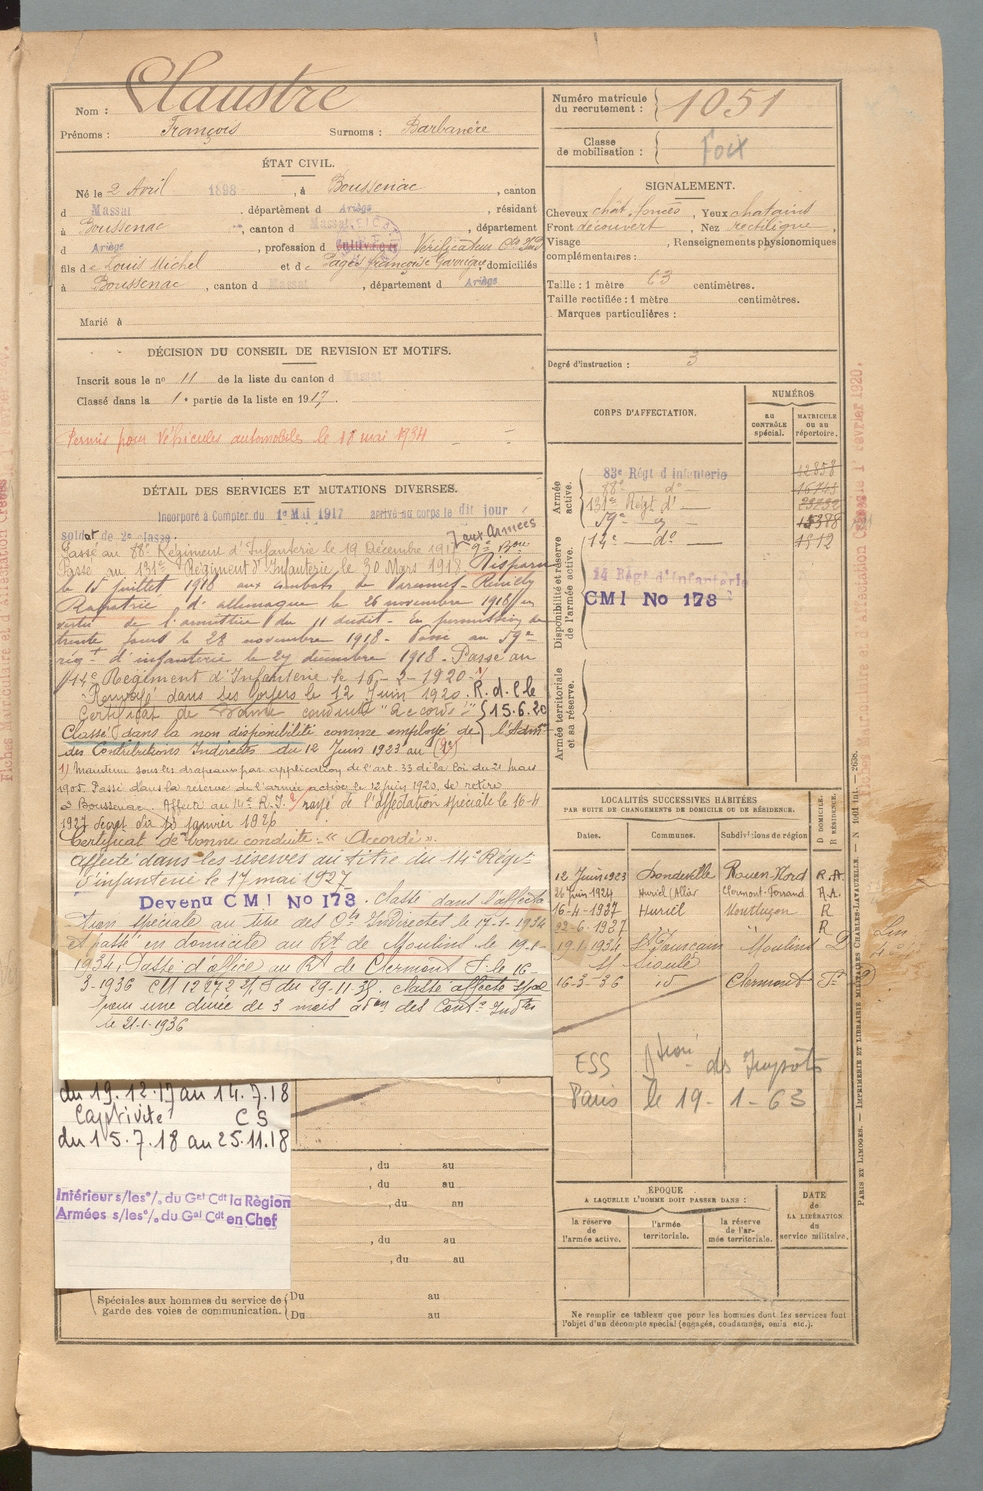 Nom : Claustre
Prénoms : François Surnoms : Barbanère
ÉTAT CIVIL.
Né le 2 Avril 1898, à Boussenac, canton
d Massat, département d Ariège, résidant
à Boussenac, canton d Massat, département
d Ariège, profession d Cultivateur Vérificateur
fils de Louis Michel et de Pagès françoise Gavrigue, domiciliés
à Boussenac, canton d Massat, département d Ariège
Marié à
DÉCISION DU CONSEIL DE REVISION ET MOTIFS.
Inscrit sous le nº 11 de la liste du canton d Massat
Classé dans la 1e partie de la liste en 1917.
Permis pour Véhicules automobiles le 18 mai 1934
DÉTAIL DES SERVICES ET MUTATIONS DIVERSES.
Incorporé à Compter du 1er Mai 1917 arrivé au corps le dit jour
soldat de 2e classe. aux Armées
Passé au 88e Régiment d'Infanterie le 19 Décembre 1917
Passé au 131e Régiment d'Infanterie le 30 Mars 1918 Disparu
le 15 juillet 1918 aux combats de Reuilly
Rapatrié d'allemagne le 26 novembre 1918 en
vertu de l'armistice du 11 dudit - En permission de
trente jours le 28 novembre 1918 - Passé au 59e
régt d'infanterie le 27 décembre 1918 - Passé au
14e Régiment d'Infanterie le 16-2-1920
Renvoyé dans ses foyers le 12 Juin 1920. R.d.l le
Certificat de bonne conduite "accordé" 15.6.20
Classé dans la non disponibilité comme employé de l'Admon
des Contributions Indirectes du 12 Juin 1923 au
1) Maintenu sous les drapeaux par application de l'art. 33 de la loi du 21 mars
1905. Passé dans la réserve de l'armée active le 12 juin 1920, se retire
à Boussenac. Affecté au 14e R.I. rayé de l'affectation spéciale le 16-4
1927 décret du 10 janvier 1926
Certificat de bonne conduite - "Accordé".
affecté dans les réserves au titre du 14e Régt
d'infanterie le 17 mai 1927
Devenu CMI No 173. Classé dans l'affecta
tion spéciale au titre des Ctes Indirectes le 17-1-1934
et passé en domicile au Rt de Moulins le 19-1-
1934. Passé d'office au Rt de Clermont F. le 16-
3-1936 du 29-11-35. classé affecté spal
pour une durée de 3 mois adon des Contns Indtes
le 21-1-1936
du 19.12.17 au 14.7.18
Captivité CS
du 15.7.18 au 25.11.18
Intérieur s/les º/. du Gal Cdt la Région
Armées s/les º/. du Gal Cdt en Chef
, du au
, du au
, du au
, du au
, du au
Spéciales aux hommes du service de garde des voies de communication.
Du au
Du au
Numéro matricule du recrutement : 1051
Classe de mobilisation : Foix
SIGNALEMENT.
Cheveux chât. foncés, Yeux chatains
Front découvert, Nez rectiligne,
Visage , Renseignements physionomiques
complémentaires :
Taille : 1 mètre 63 centimètres.
Taille rectifiée : 1 mètre centimètres.
Marques particulières :
Degré d'instruction : 3
CORPS D'AFFECTATION.
NUMÉROS
AU CONTRÔLE spécial.
MATRICULE OU AU répertoire.
Armée active.
83e Régt d'infanterie 12858
88e do 16745
131e Régt d' 23232
59e do 15378
Disponibilité et réserve de l'armée active.
14e do 1912
14 Régt d'Infanterie
CMI No 173
Armée territoriale et sa réserve.
LOCALITÉS SUCCESSIVES HABITÉES
PAR SUITE DE CHANGEMENTS DE DOMICILE OU DE RÉSIDENCE.
Dates. Communes. Subdivisions de région D DOMICILE. R RÉSIDENCE.
12 Juin 1923 Londeville Rouen Nord R.A.
26 Juin 1924 Huriel (Allier) Clermont-Ferrand R.A.
16-4-1927 Huriel Montluçon R
22-6-1927 " " R
19-1-1934 St Pourçain s/ Sioule Moulins D
16-3-36 id Clermont Fd D
ESS des Impôts
Paris le 19-1-63
ÉPOQUE
A LAQUELLE L'HOMME DOIT PASSER DANS :
la réserve de l'armée active.
l'armée territoriale.
la réserve de l'armée territoriale.
DATE de LA LIBÉRATION du service militaire.
Ne remplir ce tableau que pour les hommes dont les services font
l'objet d'un décompte spécial (engagés, condamnés, omis etc.).
PARIS ET LIMOGES. — IMPRIMERIE ET LIBRAIRIE MILITAIRES CHARLES-LAVAUZELLE.